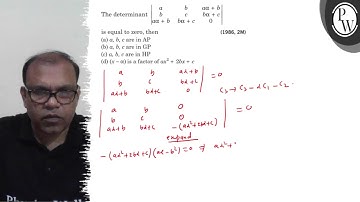 The determinant | a b aα + b |
| b c bα + c |
| aα + b bα + c 0 |
is equal to zero, then (1986, 2M)
(a) a, b, c are in AP
(b) a, b, c are in GP
(c) a, b, c are in HP
(d) (x − α) is a factor of ax² + 2bx + c
| a b aα+b |
| b c bα+c | = 0
| aα+b bα+c 0 |
C₃ → C₃ − αC₁ − C₂
| a b 0 |
| b c 0 | = 0
| aα+b bα+c −(aα²+2bα+c) |
expand
−(aα²+2bα+c)(ac−b²)=0 ⇒ aα²+
PW